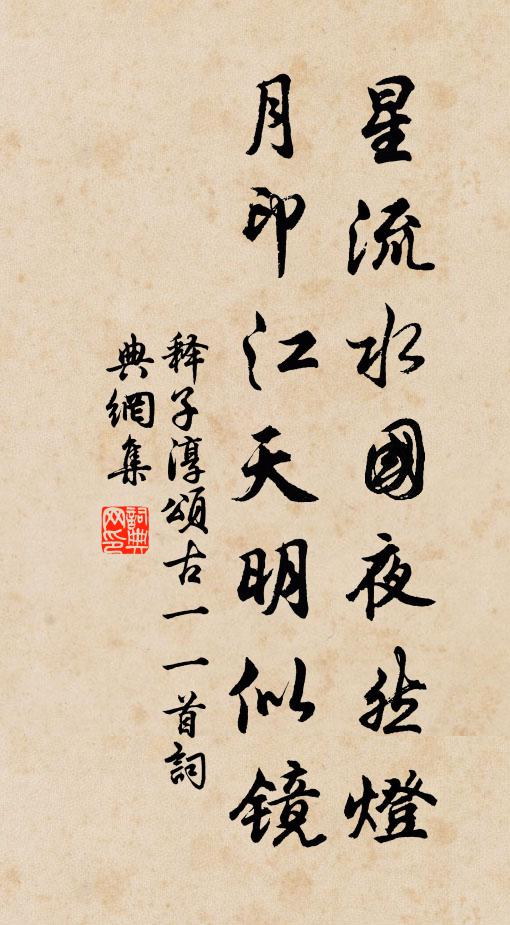 星流水國夜然燈
月印江天明似镜
释子淳頌古一一首詞
典網集
詞典网印